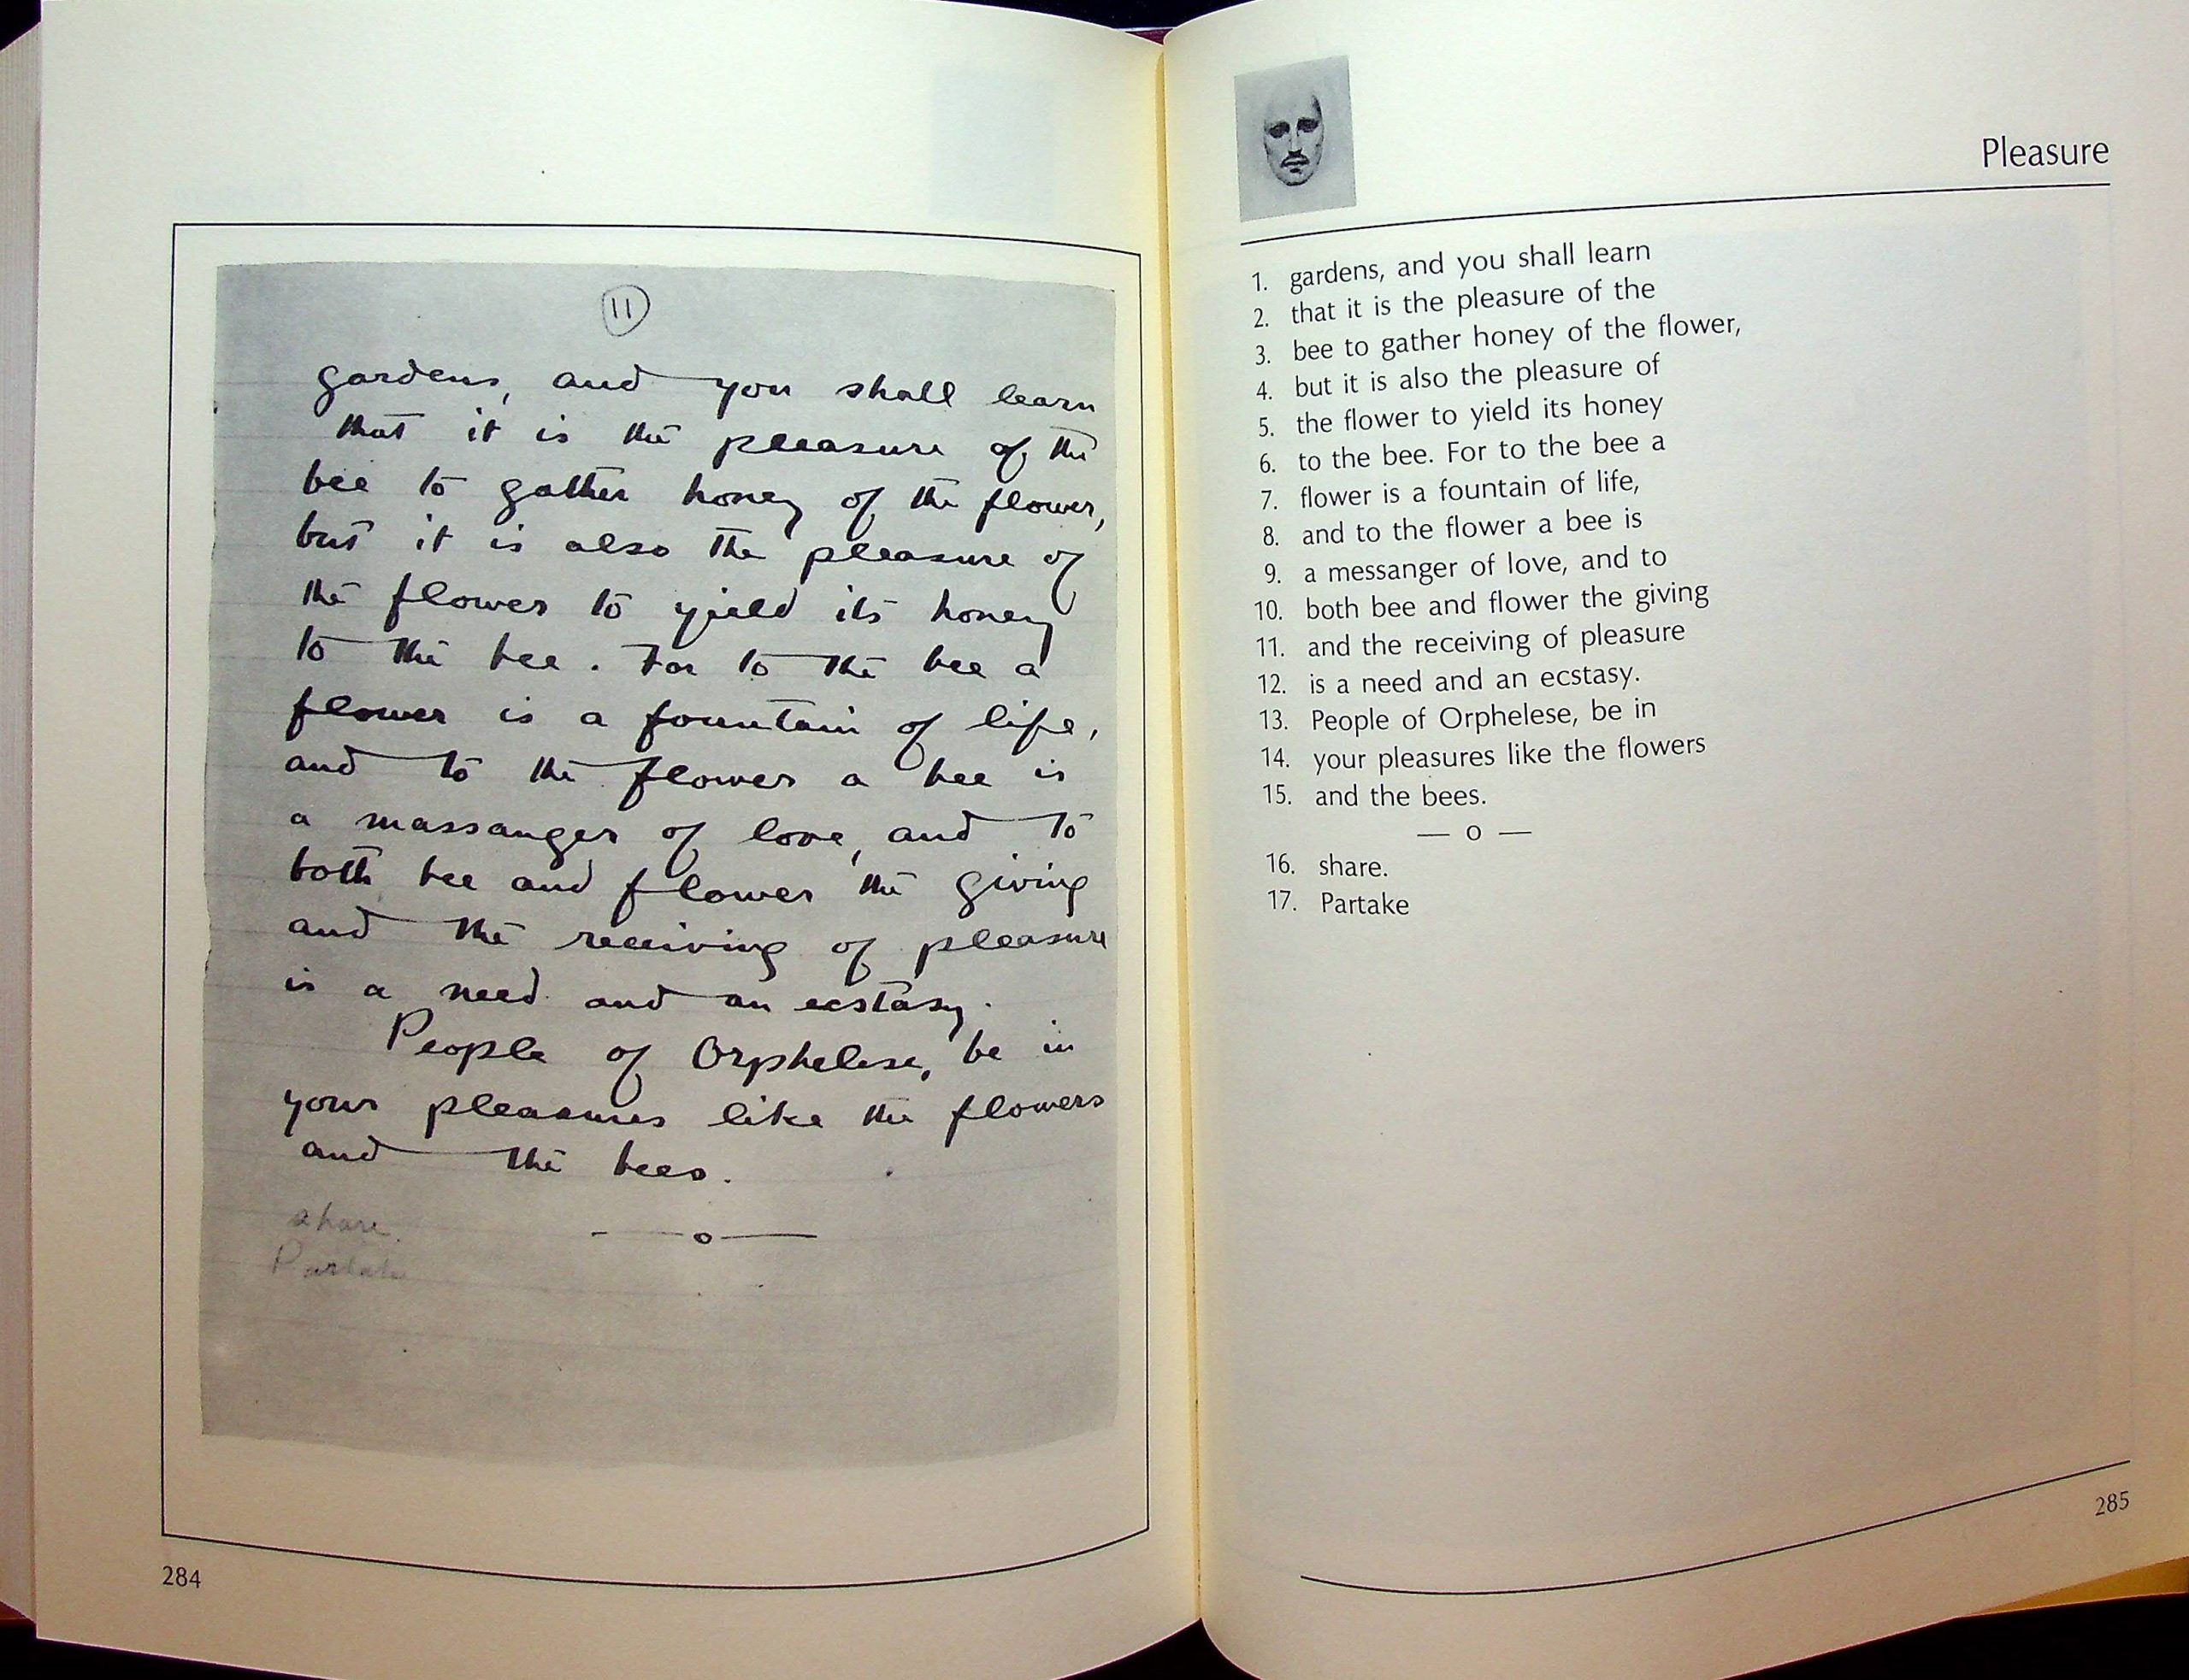 11
gardens, and you shall learn
that it is the pleasure of the
bee to gather honey of the flower,
but it is also the pleasure of
the flower to yield its honey
to the bee. For to the bee a
flower is a fountain of life,
and to the flower a bee is
a massanger of love, and to
both bee and flower the giving
and the receiving of pleasure
is a need and an ecstasy.
People of Orphelese, be in
your pleasures like the flowers
and the bees.
share.
— o —
Partake
284
Pleasure
1. gardens, and you shall learn
2. that it is the pleasure of the
3. bee to gather honey of the flower,
4. but it is also the pleasure of
5. the flower to yield its honey
6. to the bee. For to the bee a
7. flower is a fountain of life,
8. and to the flower a bee is
9. a messanger of love, and to
10. both bee and flower the giving
11. and the receiving of pleasure
12. is a need and an ecstasy.
13. People of Orphelese, be in
14. your pleasures like the flowers
15. and the bees.
— o —
16. share.
17. Partake
285